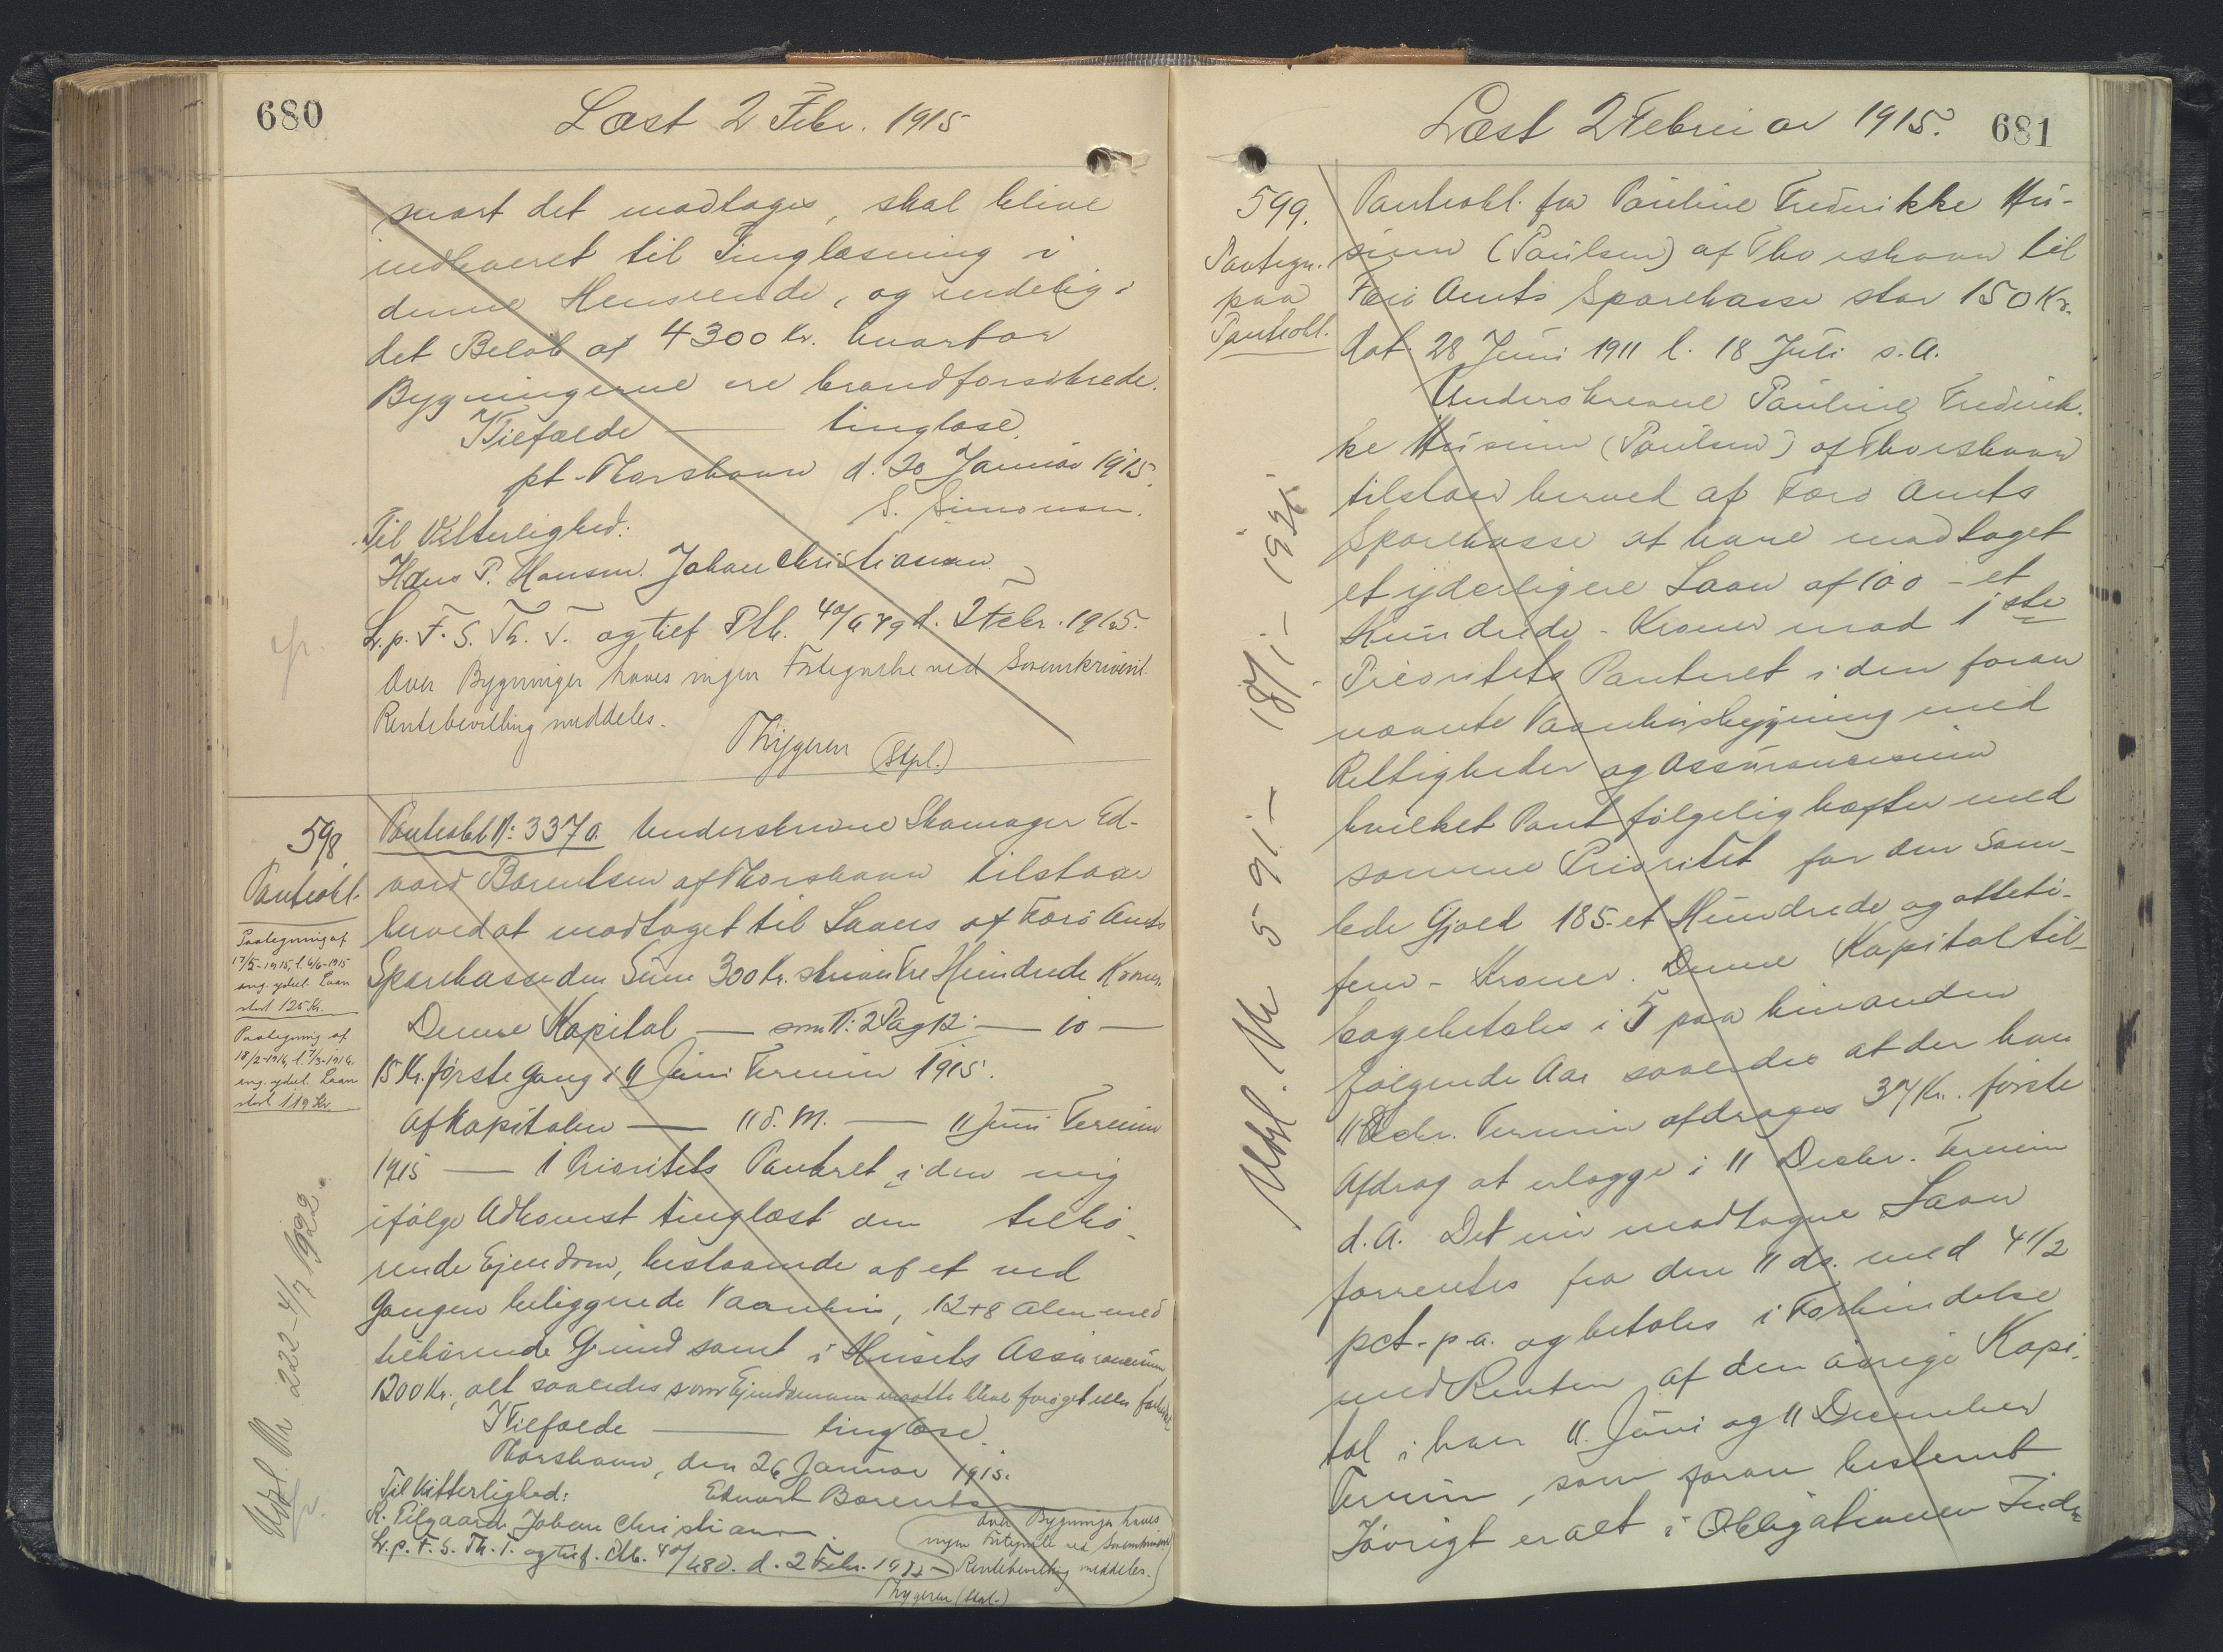 680
Læst 2 Febr. 1915
snart det modtages, skal blive
indleveret til Tinglæsning i
denne Henseende, og endelig i
det Beløb af 4300 Kr. hvorfor
Bygningerne ere brandforsikrede.
I Tilfælde — tinglæse.
pt. Thorshavn d. 20 Januar 1915.
S. Simonsen.
Til Vitterlighed:
Hans P. Hansen. Johan Christiansen
L. p. F. S. Th. T. og tief Ptb. 40/679 d. 2 Febr. 1915.
Over Bygninger haves ingen Fortegnelse ved Sorenskriveriet.
Rentebevilling meddeles.
Thygesen (Stpl.)
598.
Panteobl.
Paategning af
17/5-1915, l. 4/6-1915
ang. yderl. Laan
stort 125 Kr.
Paategning af
18/2-1916, l. 7/3-1916.
ang. yderl. Laan
stort 119 Kr.
Udsl. Nr 222 - 4/7 1922.
Panteobl N: 3370. Underskrevne Skomager Ed-
vard Barentsen af Thorshavn tilstaar
herved at modtaget til Laans af Færø Amts
Sparekasse den Sum 300 Kr. skriver Tre Hundrede Kroner.
Denne Kapital — som N: 2 Pag 12 — 10 —
15 Kr. første Gang i 11 Juni Termin 1915.
Af Kapitalen — 11 d. M. — 11 Juni Termin
1915 — 1 Prioritets Panteret i den mig
ifølge Adkomst tinglæst den tilhø-
rende Ejendom, bestaaende af et ved
Gongen beliggende Vaanhus, 12 + 8 Alen med
tilhørende Grund samt i Husets Assurancesum
1200 Kr., alt saaledes som Ejendommen maatte blive forøget eller
I Tilfælde — tinglæse.
Thorshavn, den 26 Januar 1915.
Til Vitterlighed: Edvart Barents
K. Eilgaard. Johan Christiansen
L. p. F. S. Th. T. og tief. Ptb. 40/680. d. 2 Febr. 1915
Over Bygninger haves
ingen Fortegnelse ved Sorenskriveriet
Rentebevilling meddeles.
Thygesen (Stpl.)
Læst 2 Februar 1915. 681
599.
Paategn.
paa
Panteobl.
Udsl. Nr 5 - 91 - 18/1 -
Panteobl. fra Pauline Frederikke Hu-
sum (Paulsen) af Thorshavn til
Færø Amts Sparekasse stor 150 Kr.
dat. 28 Juni 1911 l. 18 Juli s. A.
Underskrevne Pauline Frederik-
ke Husum (Paulsen) af Thorshavn
tilstaar herved af Færø Amts
Sparekasse at have modtaget
et yderligere Laan af 100 - et
Hundrede - Kroner mod 1ste
Prioritets Panteret i den foran
nævnte Vaanhusbygning med
Rettigheder og Assurancesum
hvilket Pant følgelig hæfter med
samme Prioritet for den Sam-
lede Gjæld 185 - et Hundrede og otteti-
fem - Kroner. Denne Kapital til-
bagebetales i 5 paa hinanden
følgende Aar saaledes at der hver
11 Decbr. Termin afdrages 37 Kr. første
Afdrag at erlægge i 11 Decbr. Termin
d. A. Det nu modtagne Laan
forrentes fra den 11 ds. med 4 1/2
pct. p. a. og betales i Forbindelse
med Renten af den øvrige Kapi-
tal i hver 11. Juni og 11 December
Termin, som foran bestemt
Iøvrigt er alt i Obligationen Inde-